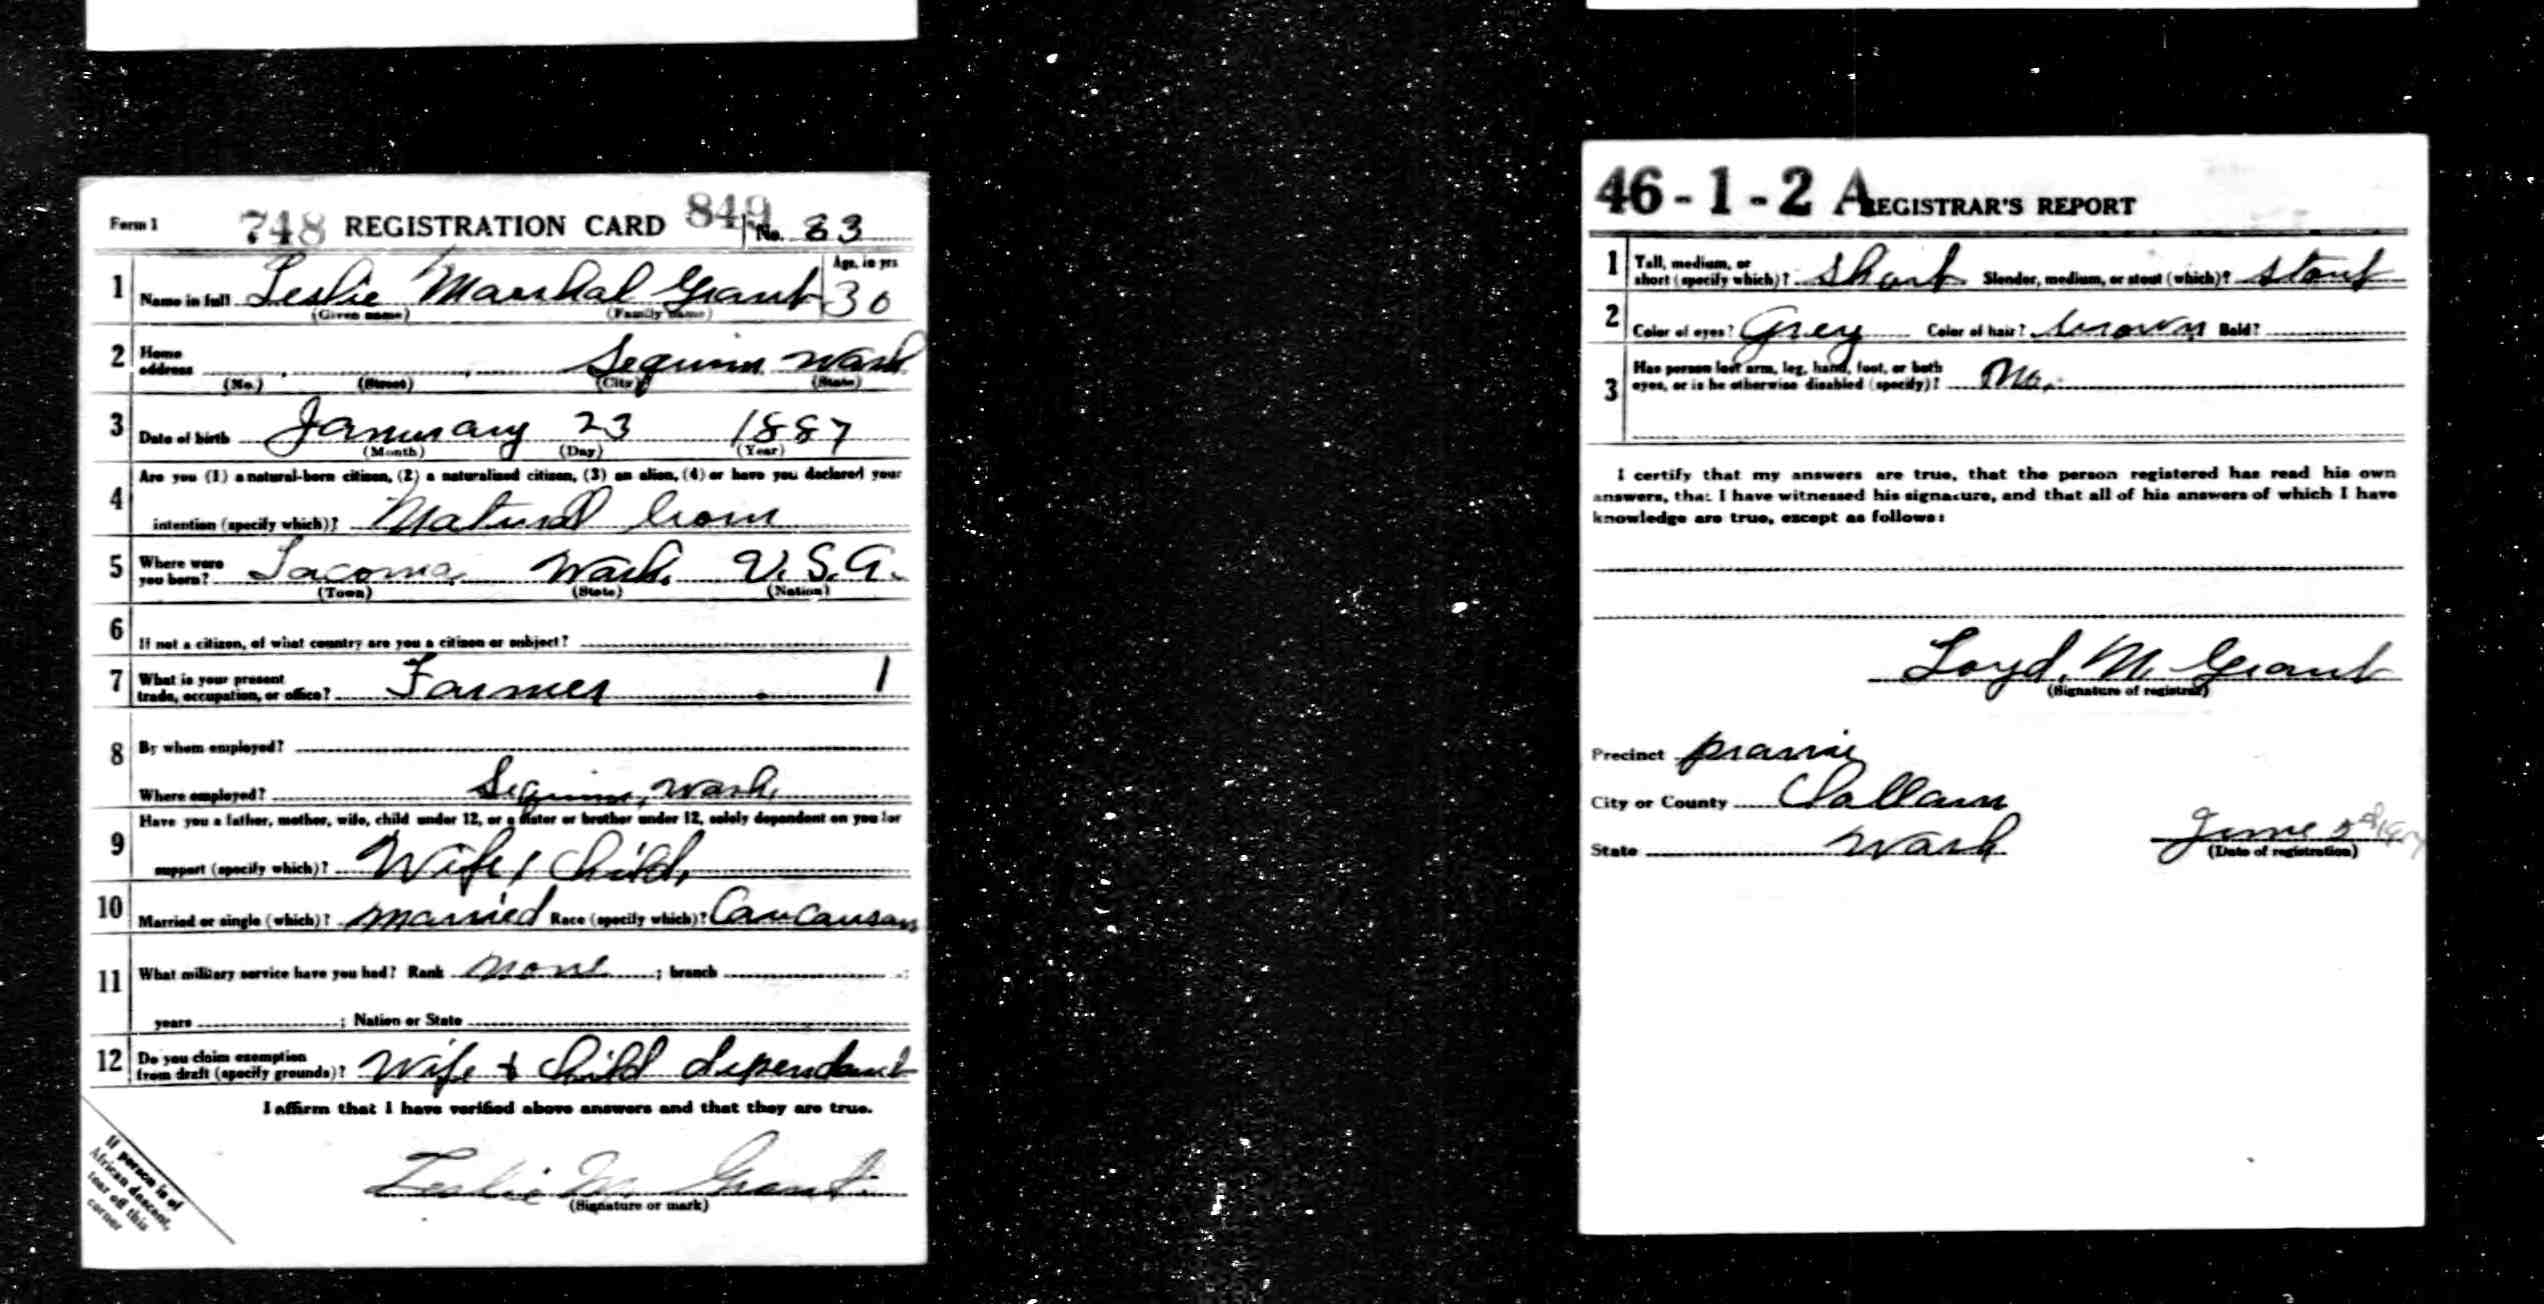 Form 1 748 REGISTRATION CARD 849 No. 83
1 Name in full Leslie Marshal Grant Age, in yrs 30
(Given name) (Family name)
2 Home address Sequim Wash
(No.) (Street) (City) (State)
3 Date of birth January 23 1887
(Month) (Day) (Year)
4 Are you (1) a natural-born citizen, (2) a naturalized citizen, (3) an alien, (4) or have you declared your
intention (specify which)? Natural born
5 Where were you born? Tacoma Wash. U.S.A.
(Town) (State) (Nation)
6 If not a citizen, of what country are you a citizen or subject?
7 What is your present trade, occupation, or office? Farmer 1
8 By whom employed?
Where employed? Sequim, Wash.
9 Have you a father, mother, wife, child under 12, or a sister or brother under 12, solely dependent on you for
support (specify which)? Wife, Child,
10 Married or single (which)? married Race (specify which)? Caucausan
11 What military service have you had? Rank none ; branch ;
years ; Nation or State
12 Do you claim exemption from draft (specify grounds)? Wife & Child dependant
I affirm that I have verified above answers and that they are true.
Leslie M. Grant.
(Signature or mark)
If person is of
African descent,
tear off this
corner
46-1-2 A REGISTRAR'S REPORT
1 Tall, medium, or short (specify which)? Short Slender, medium, or stout (which)? stout
2 Color of eyes? Grey Color of hair? brown Bald?
3 Has person lost arm, leg, hand, foot, or both
eyes, or is he otherwise disabled (specify)? No.
I certify that my answers are true, that the person registered has read his own
answers, that I have witnessed his signature, and that all of his answers of which I have
knowledge are true, except as follows:
Loyd. M. Grant
(Signature of registrar)
Precinct prairie
City or County Clallam
State Wash June 5th
(Date of registration)